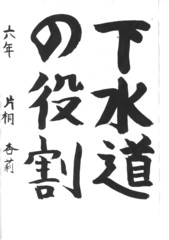 下水道
の役割
六年 片桐 杏莉